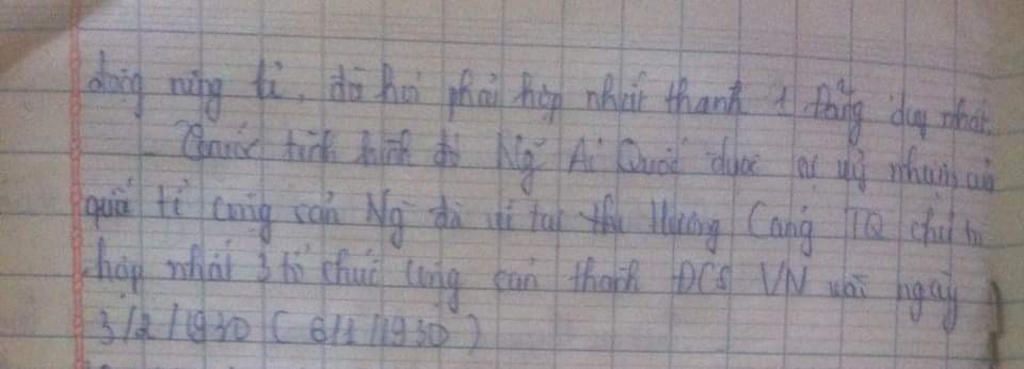 đảng riêng lẻ, đòi hỏi phải hợp nhất thành 1 Đảng duy nhất.
Trước tình hình đó Ng Ái Quốc được sự uỷ nhiệm của
quốc tế cộng sản Ng đã về tại Hương Cảng TQ chủ trì
hợp nhất 3 tổ chức cộng sản thành ĐCS VN vào ngày
3/2/1930 (6/1/1930)